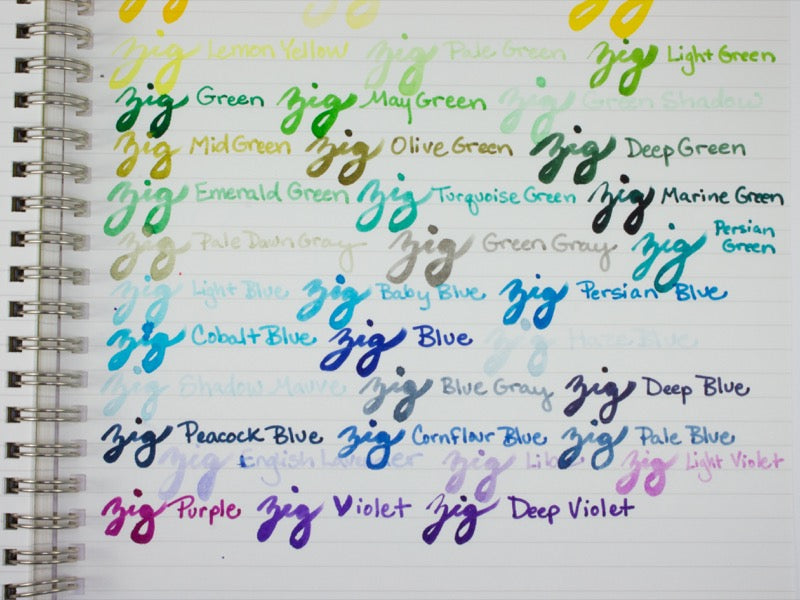 zig Lemon Yellow zig Pale Green zig Light Green
zig Green zig May Green zig Green Shadow
zig Mid Green zig Olive Green zig Deep Green
zig Emerald Green zig Turquoise Green zig Marine Green
zig Pale Dawn Gray zig Green Gray zig Persian Green
zig Light Blue zig Baby Blue zig Persian Blue
zig Cobalt Blue zig Blue zig Haze Blue
zig Shadow Mauve zig Blue Gray zig Deep Blue
zig Peacock Blue zig Cornflour Blue zig Pale Blue
zig English Lavender zig Lilac zig Light Violet
zig Purple zig Violet zig Deep Violet